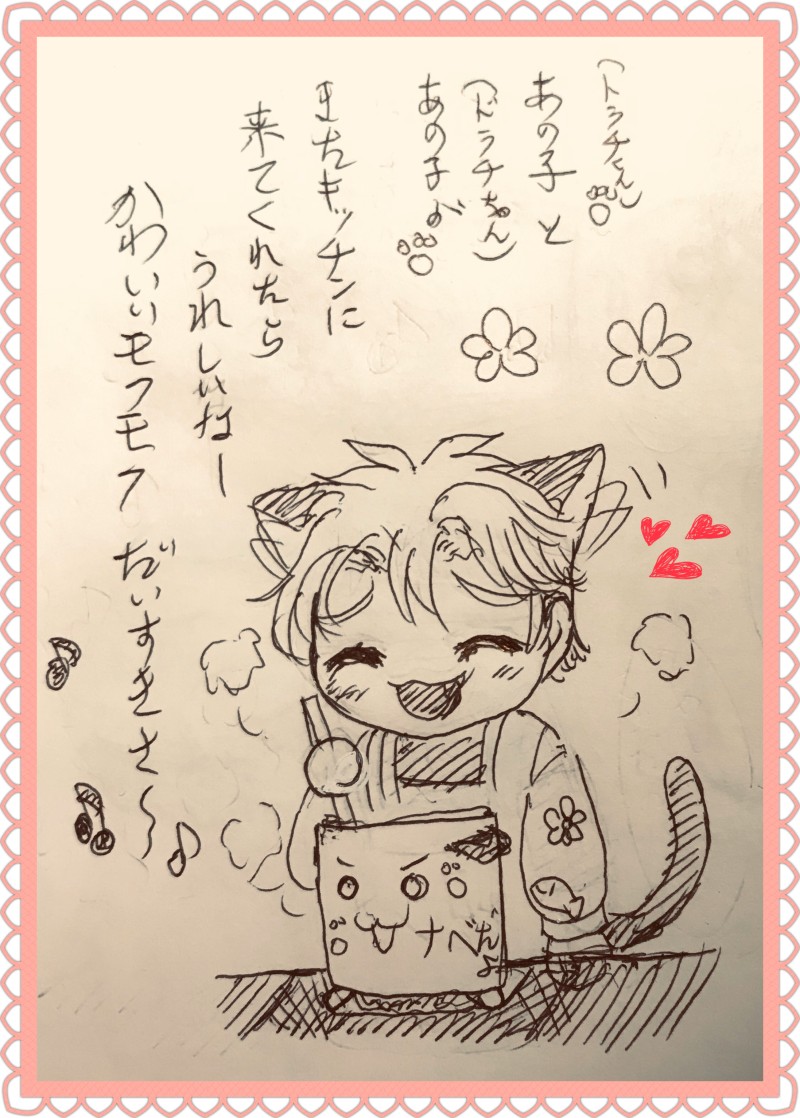 (トラチくん)
あの子と
(ドラチちゃん)
あの子が
またキッチンに
来てくれたら
うれしいなー
かわいいモフモフ だいすきさ〜
ナベだよ